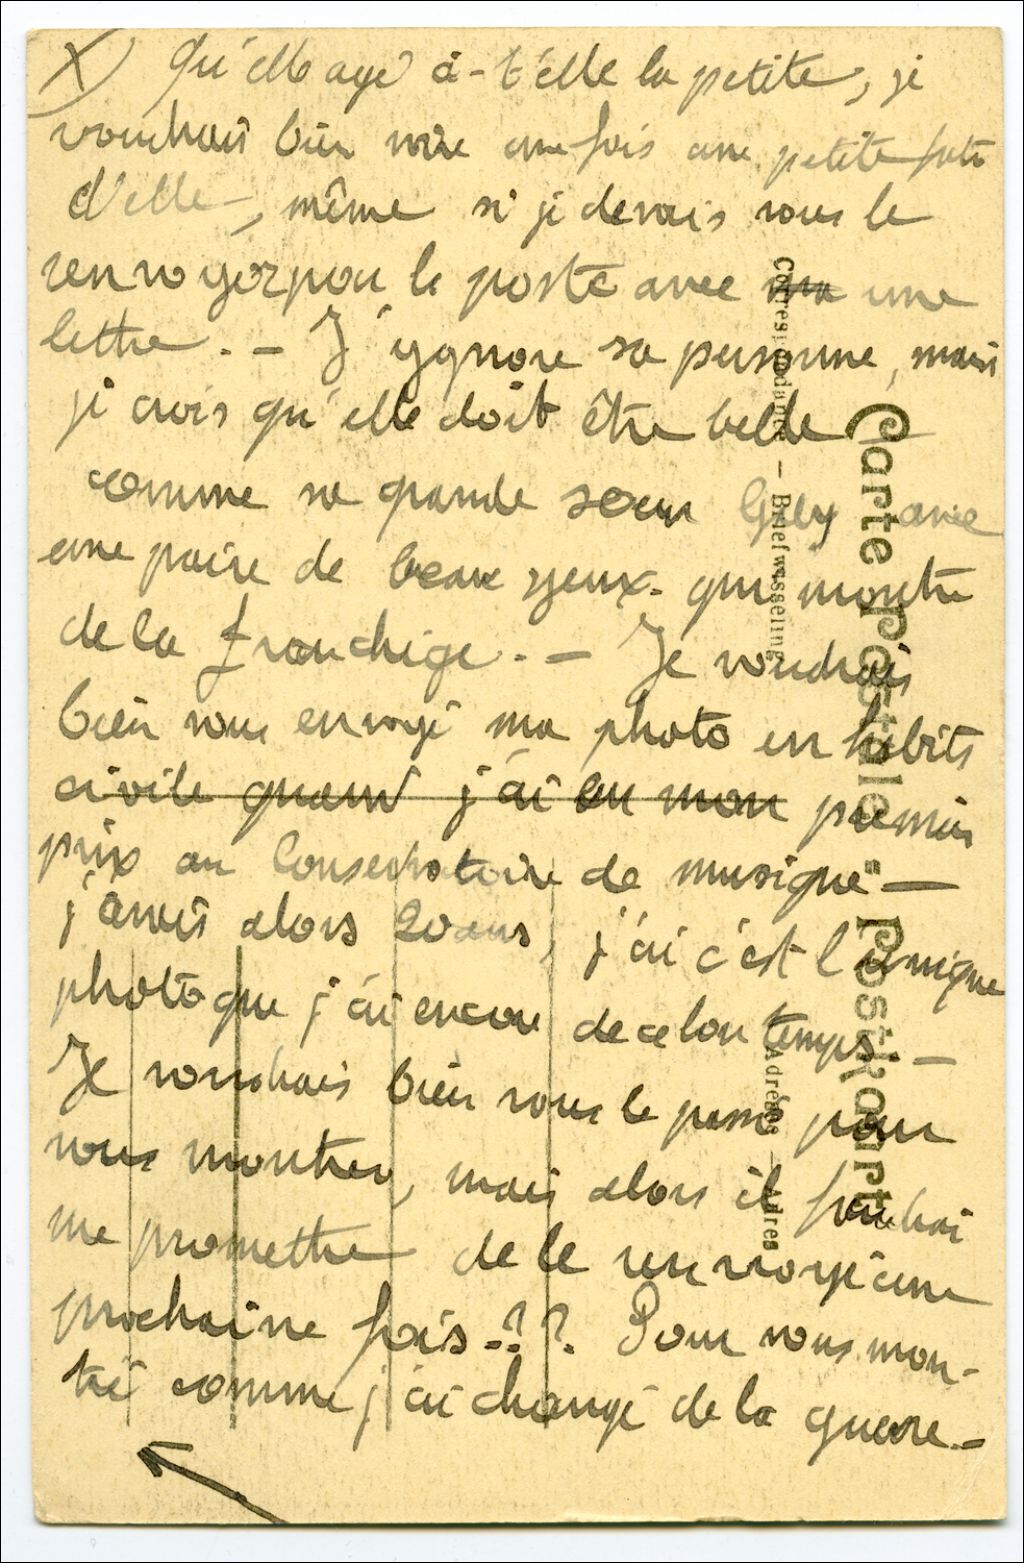 X) Qu'elle agé à-t'elle la petite, je
voudrais bien voire une fois une petite foto
d'elle, même si je devais vous le
renvoyer pou la poste avec une
lettre. - J'ygnore sa personne, mais
je crois qu'elle doit être belle
comme sa grande soeur Gaby avec
une paire de beaux yeux qui montre
de la franchige. - Je voudrais
bien vous envoyé ma photo en habits
civile quand j'ai eu mon premier
prix au Conservatoire de musique" -
j'avais alors 20 ans, j'ai c'est l'unique
photo que j'ai encore de ce bon temps. -
Je voudrais bien vous le passé pour
vous montrer, mais alors il faudrai
me promettre de le renvoyé une
prochaine fois -?? Pour vous mon-
tré comme j'ai changé de la guerre. -
Carte postale - Postkaart
Correspondance - Briefwisseling
Adresse - Adres